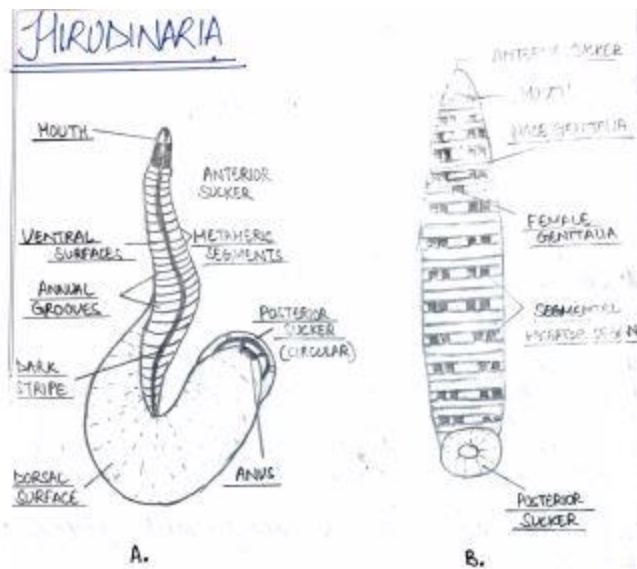 HIRUDINARIA
MOUTH
ANTERIOR
SUCKER
VENTRAL
SURFACES
METAMERIC
SEGMENTS
ANNUAL
GROOVES
POSTERIOR
SUCKER
(CIRCULAR)
DARK
STRIPE
DORSAL
SURFACE
ANUS
A.
ANTERIOR SUCKER
MOUTH
MALE GENITALIA
FEMALE
GENITALIA
SEGMENTAL
POSTERIOR
SUCKER
B.